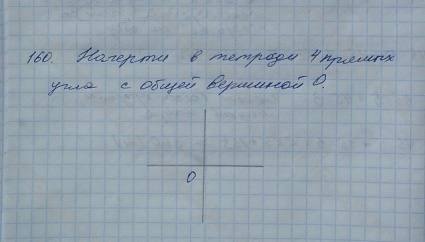 160. Начерти в тетради 4 прямых
угла с общей вершиной О.
О